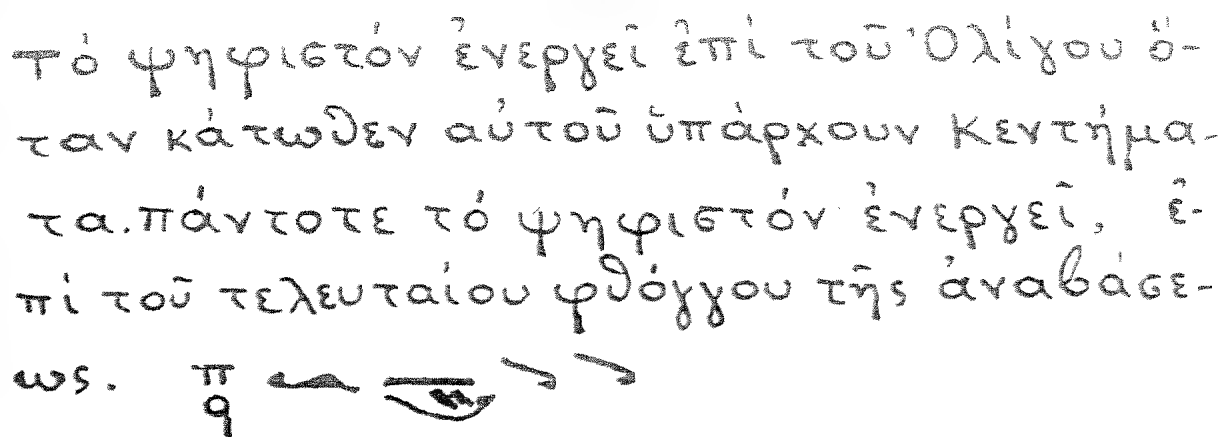 τό ψηφιστόν ἐνεργεῖ ἐπί τοῦ Ὀλίγου ὅ-
ταν κάτωθεν αὐτοῦ ὑπάρχουν Κεντήμα-
τα. πάντοτε τό ψηφιστόν ἐνεργεῖ, ἐ-
πί τοῦ τελευταίου φθόγγου τῆς ἀναβάσε-
ως. π
q